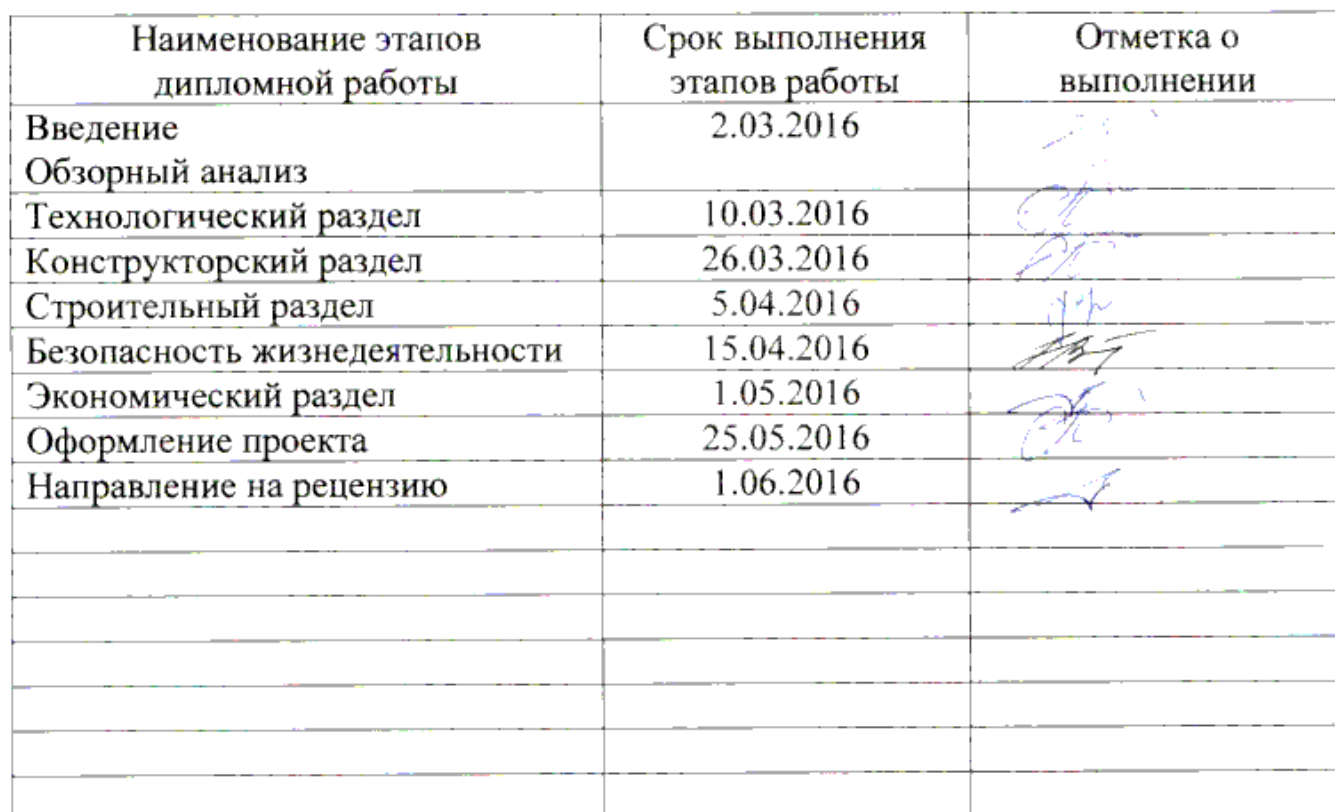 Наименование этапов
дипломной работы
Срок выполнения
этапов работы
Отметка о
выполнении
Введение
2.03.2016
Обзорный анализ
Технологический раздел
10.03.2016
Конструкторский раздел
26.03.2016
Строительный раздел
5.04.2016
Безопасность жизнедеятельности
15.04.2016
Экономический раздел
1.05.2016
Оформление проекта
25.05.2016
Направление на рецензию
1.06.2016